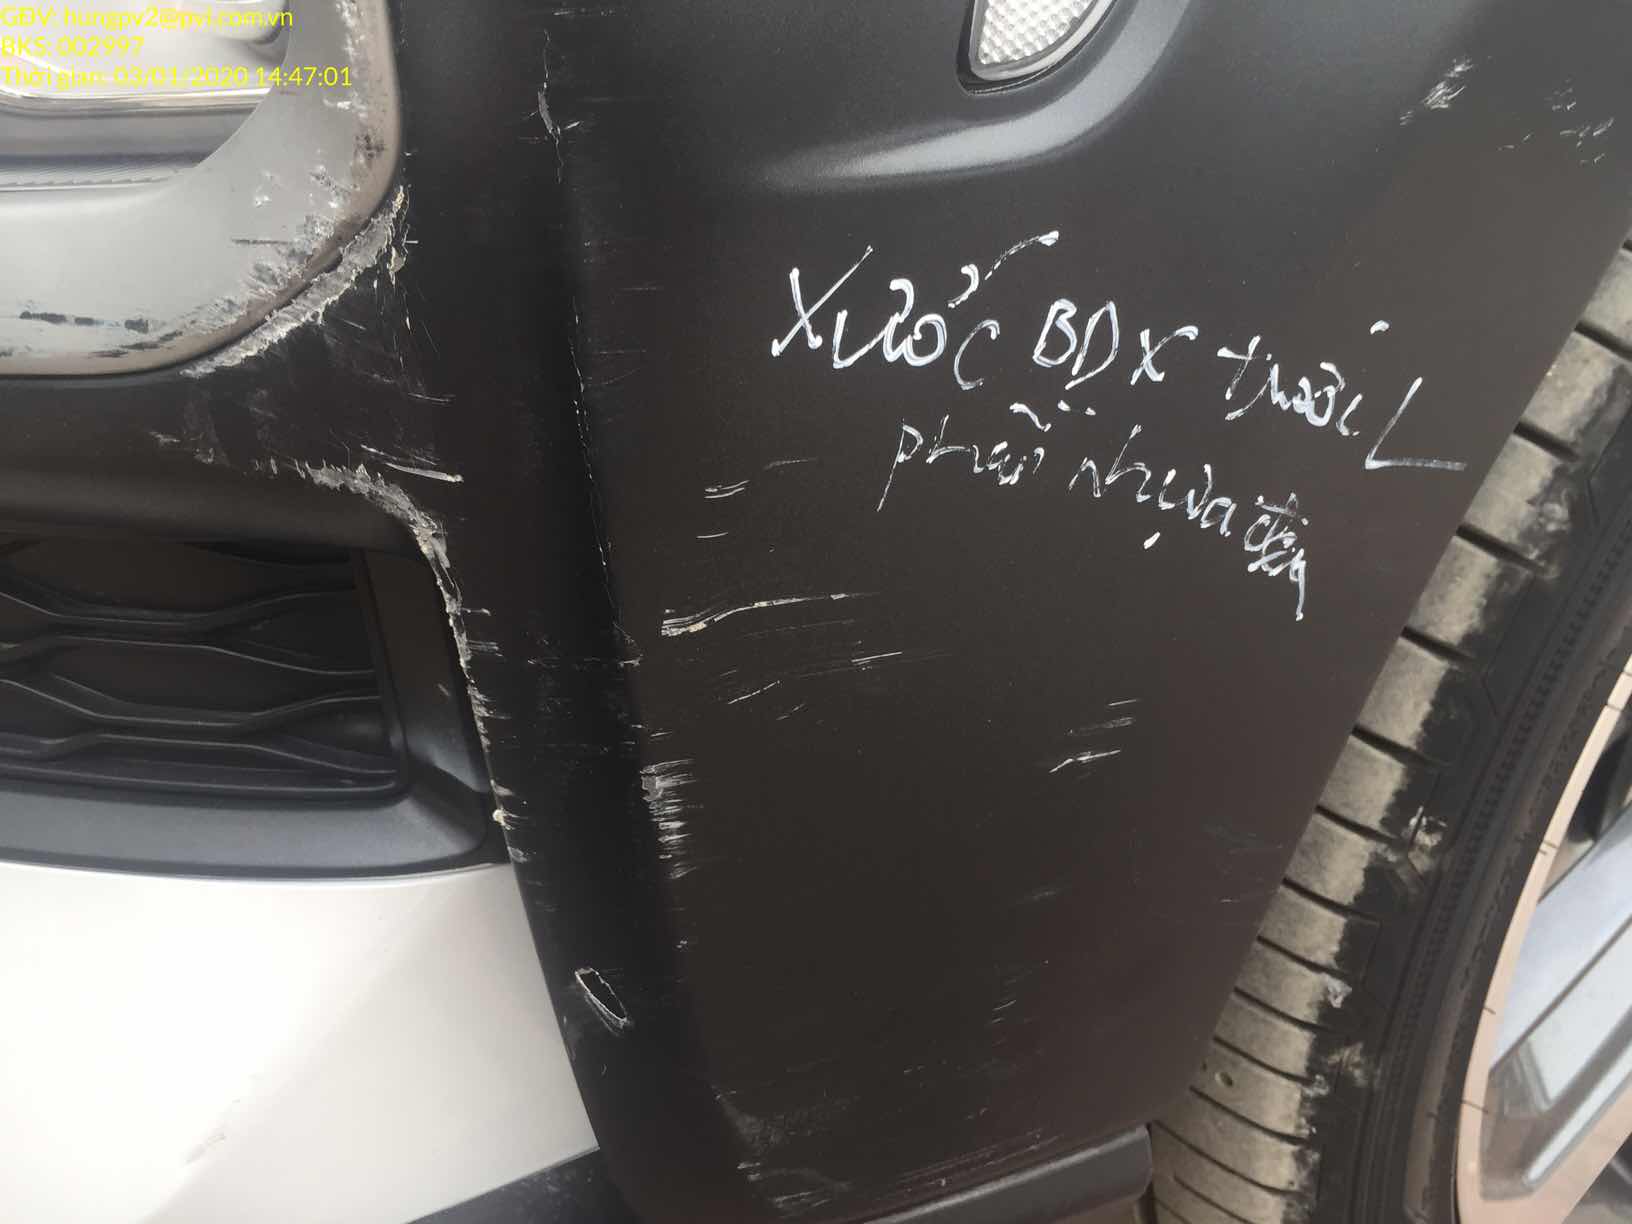 GĐV: hungpv2@pvi.com.vn
BKS: 002997
Thời gian: 03/01/2020 14:47:01
Xước BĐX trước L
phần nhựa đen